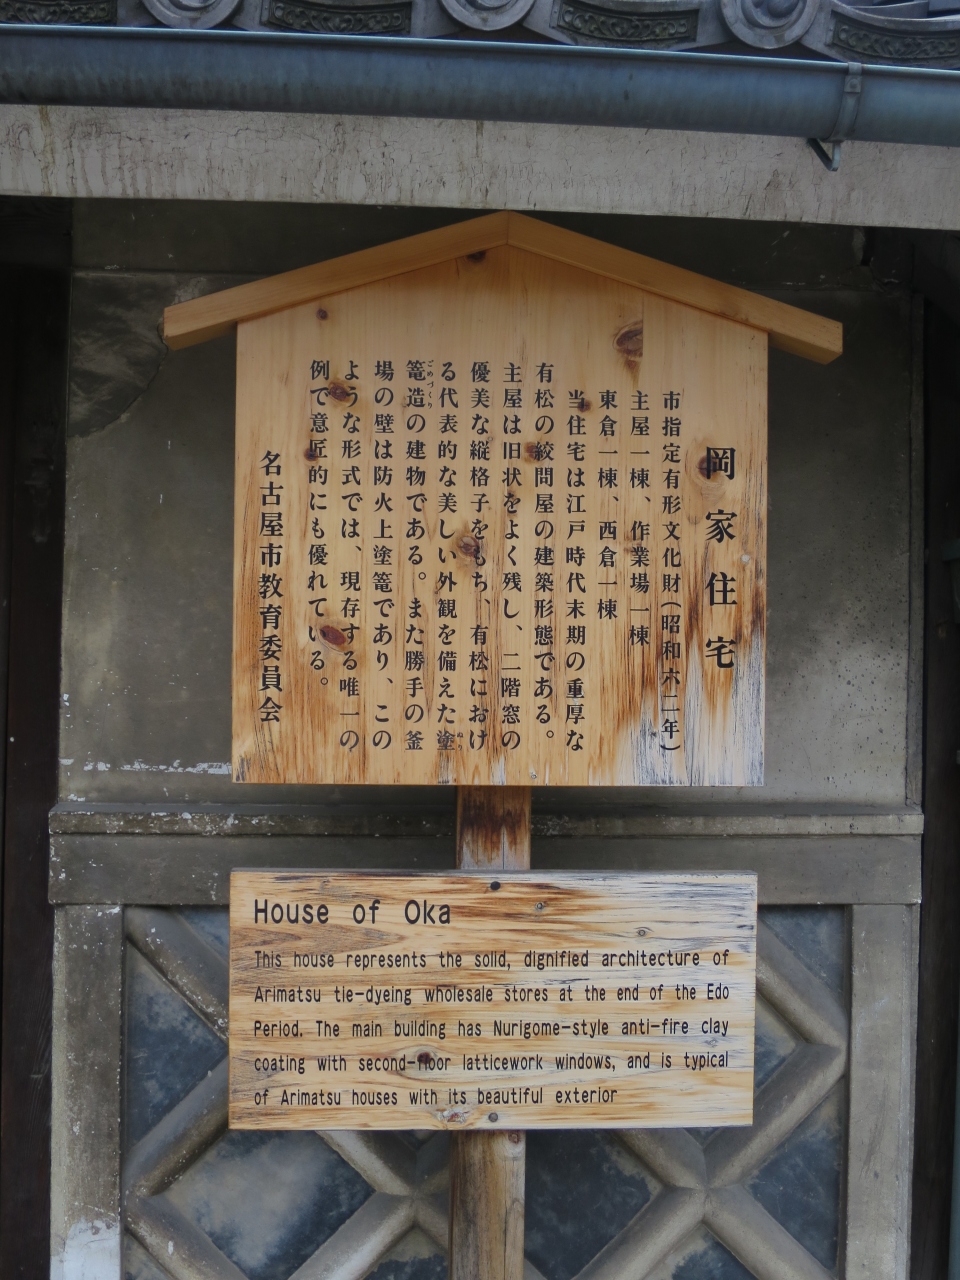 岡家住宅
市指定有形文化財(昭和六二年)
主屋一棟、作業場一棟
東倉一棟、西倉一棟
当住宅は江戸時代末期の重厚な
有松の絞問屋の建築形態である。
主屋は旧状をよく残し、二階窓の
優美な縦格子をもち、有松におけ
る代表的な美しい外観を備えた塗
篭造の建物である。また勝手の釜
場の壁は防火上塗篭であり、この
ような形式では、現存する唯一の
例で意匠的にも優れている。
名古屋市教育委員会
ぬり
ごめづくり
House of Oka
This house represents the solid, dignified architecture of
Arimatsu tie-dyeing wholesale stores at the end of the Edo
Period. The main building has Nurigome-style anti-fire clay
coating with second-floor latticework windows, and is typical
of Arimatsu houses with its beautiful exterior